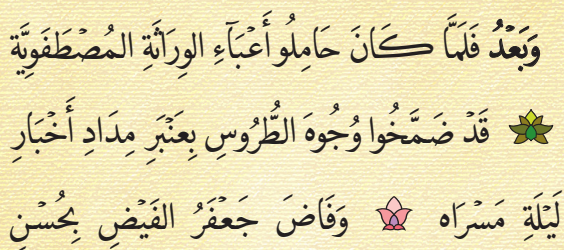 وَبَعْدُ فَلَمَّا كَانَ حَامِلُو أَعْبَآءِ الوِرَاثَةِ المُصْطَفَوِيَّةِ
قَدْ ضَمَّخُوا وُجُوهَ الطُّرُوسِ بِعَنْبَرِ مِدَادِ أَخْبَارِ
لَيْلَةِ مَسْرَاه وَفَاضَ جَعْفَرُ الفَيْضِ بِحُسْنِ